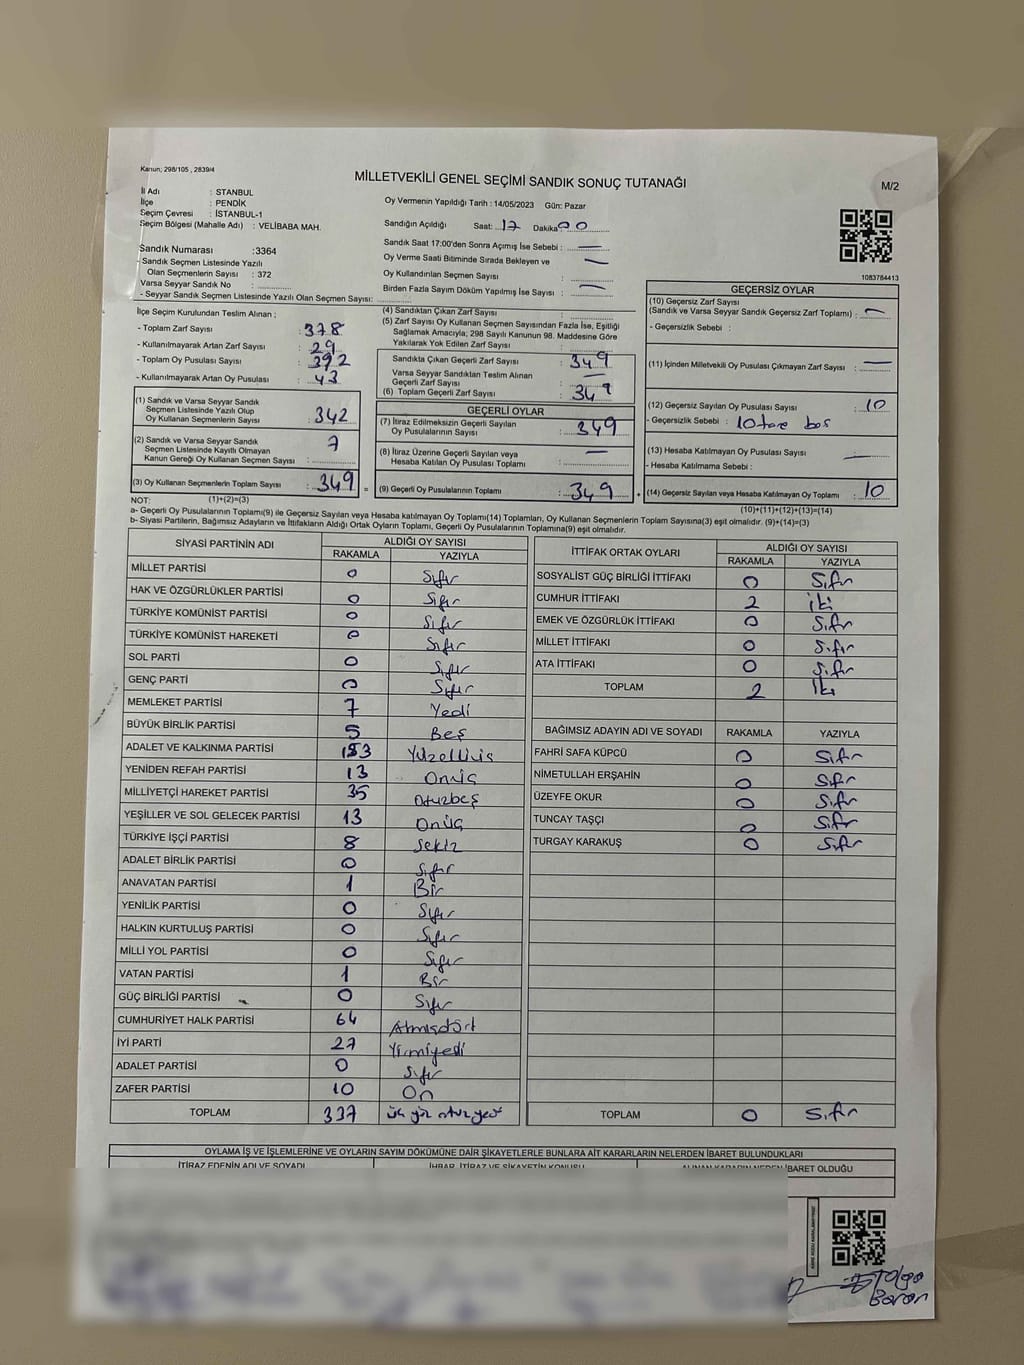 Kanun; 298/105 , 2839/4
MİLLETVEKİLİ GENEL SEÇİMİ SANDIK SONUÇ TUTANAĞI
M/2
İl Adı : STANBUL
İlçe : PENDİK
Seçim Çevresi : İSTANBUL-1
Seçim Bölgesi (Mahalle Adı) : VELİBABA MAH.
Oy Vermenin Yapıldığı Tarih : 14/05/2023 Gün: Pazar
Sandığın Açıldığı Saat: 17 Dakika 00
Sandık Saat 17:00'den Sonra Açımış İse Sebebi : —
Oy Verme Saati Bitiminde Sırada Bekleyen ve —
Oy Kullandırılan Seçmen Sayısı :
Birden Fazla Sayım Döküm Yapılmış İse Sayısı : —
Sandık Numarası : 3364
- Sandık Seçmen Listesinde Yazılı
Olan Seçmenlerin Sayısı : 372
Varsa Seyyar Sandık No :
- Seyyar Sandık Seçmen Listesinde Yazılı Olan Seçmen Sayısı:
1083784413
İlçe Seçim Kurulundan Teslim Alınan ;
- Toplam Zarf Sayısı : 378
- Kullanılmayarak Artan Zarf Sayısı : 29
- Toplam Oy Pusulası Sayısı : 392
- Kullanılmayarak Artan Oy Pusulası : 43
(1) Sandık ve Varsa Seyyar Sandık
Seçmen Listesinde Yazılı Olup
Oy Kullanan Seçmenlerin Sayısı : 342
(2) Sandık ve Varsa Seyyar Sandık
Seçmen Listesinde Kayıtlı Olmayan
Kanun Gereği Oy Kullanan Seçmen Sayısı : 7
(3) Oy Kullanan Seçmenlerin Toplam Sayısı : 349 =
(4) Sandıktan Çıkan Zarf Sayısı :
(5) Zarf Sayısı Oy Kullanan Seçmen Sayısından Fazla İse, Eşitliği
Sağlamak Amacıyla; 298 Sayılı Kanunun 98. Maddesine Göre
Yakılarak Yok Edilen Zarf Sayısı :
Sandıkta Çıkan Geçerli Zarf Sayısı : 349
Varsa Seyyar Sandıktan Teslim Alınan —
Geçerli Zarf Sayısı :
(6) Toplam Geçerli Zarf Sayısı : 349
GEÇERLİ OYLAR
(7) İtiraz Edilmeksizin Geçerli Sayılan
Oy Pusulalarının Sayısı : 349
(8) İtiraz Üzerine Geçerli Sayılan veya —
Hesaba Katılan Oy Pusulası Toplamı :
(9) Geçerli Oy Pusulalarının Toplamı : 349 +
GEÇERSİZ OYLAR
(10) Geçersiz Zarf Sayısı
(Sandık ve Varsa Seyyar Sandık Geçersiz Zarf Toplamı) : —
- Geçersizlik Sebebi :
(11) İçinden Milletvekili Oy Pusulası Çıkmayan Zarf Sayısı : —
(12) Geçersiz Sayılan Oy Pusulası Sayısı : 10
- Geçersizlik Sebebi : 10 tane boş
(13) Hesaba Katılmayan Oy Pusulası Sayısı : —
- Hesaba Katılmama Sebebi :
(14) Geçersiz Sayılan veya Hesaba Katılmayan Oy Toplamı : 10
NOT: (1)+(2)=(3)
(10)+(11)+(12)+(13)=(14)
a- Geçerli Oy Pusulaların Toplamı(9) ile Geçersiz Sayılan veya Hesaba katılmayan Oy Toplamı(14) Toplamları, Oy Kullanan Seçmenlerin Toplam Sayısına(3) eşit olmalıdır. (9)+(14)=(3)
b- Siyasi Partilerin, Bağımsız Adayların ve İttifakların Aldığı Ortak Oyların Toplamı, Geçerli Oy Pusulalarının Toplamına(9) eşit olmalıdır.
SİYASİ PARTİNİN ADI ALDIĞI OY SAYISI
RAKAMLA YAZIYLA
MİLLET PARTİSİ 0 Sıfır
HAK VE ÖZGÜRLÜKLER PARTİSİ 0 Sıfır
TÜRKİYE KOMÜNİST PARTİSİ 0 Sıfır
TÜRKİYE KOMÜNİST HAREKETİ 0 Sıfır
SOL PARTİ 0 Sıfır
GENÇ PARTİ 0 Sıfır
MEMLEKET PARTİSİ 7 Yedi
BÜYÜK BİRLİK PARTİSİ 5 Beş
ADALET VE KALKINMA PARTİSİ 153 Yüzelliüç
YENİDEN REFAH PARTİSİ 13 Onüç
MİLLİYETÇİ HAREKET PARTİSİ 35 Otuzbeş
YEŞİLLER VE SOL GELECEK PARTİSİ 13 Onüç
TÜRKİYE İŞÇİ PARTİSİ 8 Sekiz
ADALET BİRLİK PARTİSİ 0 Sıfır
ANAVATAN PARTİSİ 1 Bir
YENİLİK PARTİSİ 0 Sıfır
HALKIN KURTULUŞ PARTİSİ 0 Sıfır
MİLLİ YOL PARTİSİ 0 Sıfır
VATAN PARTİSİ 1 Bir
GÜÇ BİRLİĞİ PARTİSİ 0 Sıfır
CUMHURİYET HALK PARTİSİ 64 Atmışdört
İYİ PARTİ 27 Yirmiyedi
ADALET PARTİSİ 0 Sıfır
ZAFER PARTİSİ 10 On
TOPLAM 337 üç yüz otuz yedi
İTTİFAK ORTAK OYLARI ALDIĞI OY SAYISI
RAKAMLA YAZIYLA
SOSYALİST GÜÇ BİRLİĞİ İTTİFAKI 0 Sıfır
CUMHUR İTTİFAKI 2 İki
EMEK VE ÖZGÜRLÜK İTTİFAKI 0 Sıfır
MİLLET İTTİFAKI 0 Sıfır
ATA İTTİFAKI 0 Sıfır
TOPLAM 2 İki
BAĞIMSIZ ADAYIN ADI VE SOYADI RAKAMLA YAZIYLA
FAHRİ SAFA KÜPCÜ 0 Sıfır
NİMETULLAH ERŞAHİN 0 Sıfır
ÜZEYFE OKUR 0 Sıfır
TUNCAY TAŞÇI 0 Sıfır
TURGAY KARAKUŞ 0 Sıfır
TOPLAM 0 Sıfır
OYLAMA İŞ VE İŞLEMLERİNE VE OYLARIN SAYIM DÖKÜMÜNE DAİR ŞİKAYETLERLE BUNLARA AİT KARARLARIN NELERDEN İBARET BULUNDUKLARI
İTİRAZ EDENİN ADI VE SOYADI İHBAR, İTİRAZ VE ŞİKAYETİN KONUSU ALINAN KARARIN NEDEN İBARET OLDUĞU
Tolga
Baran